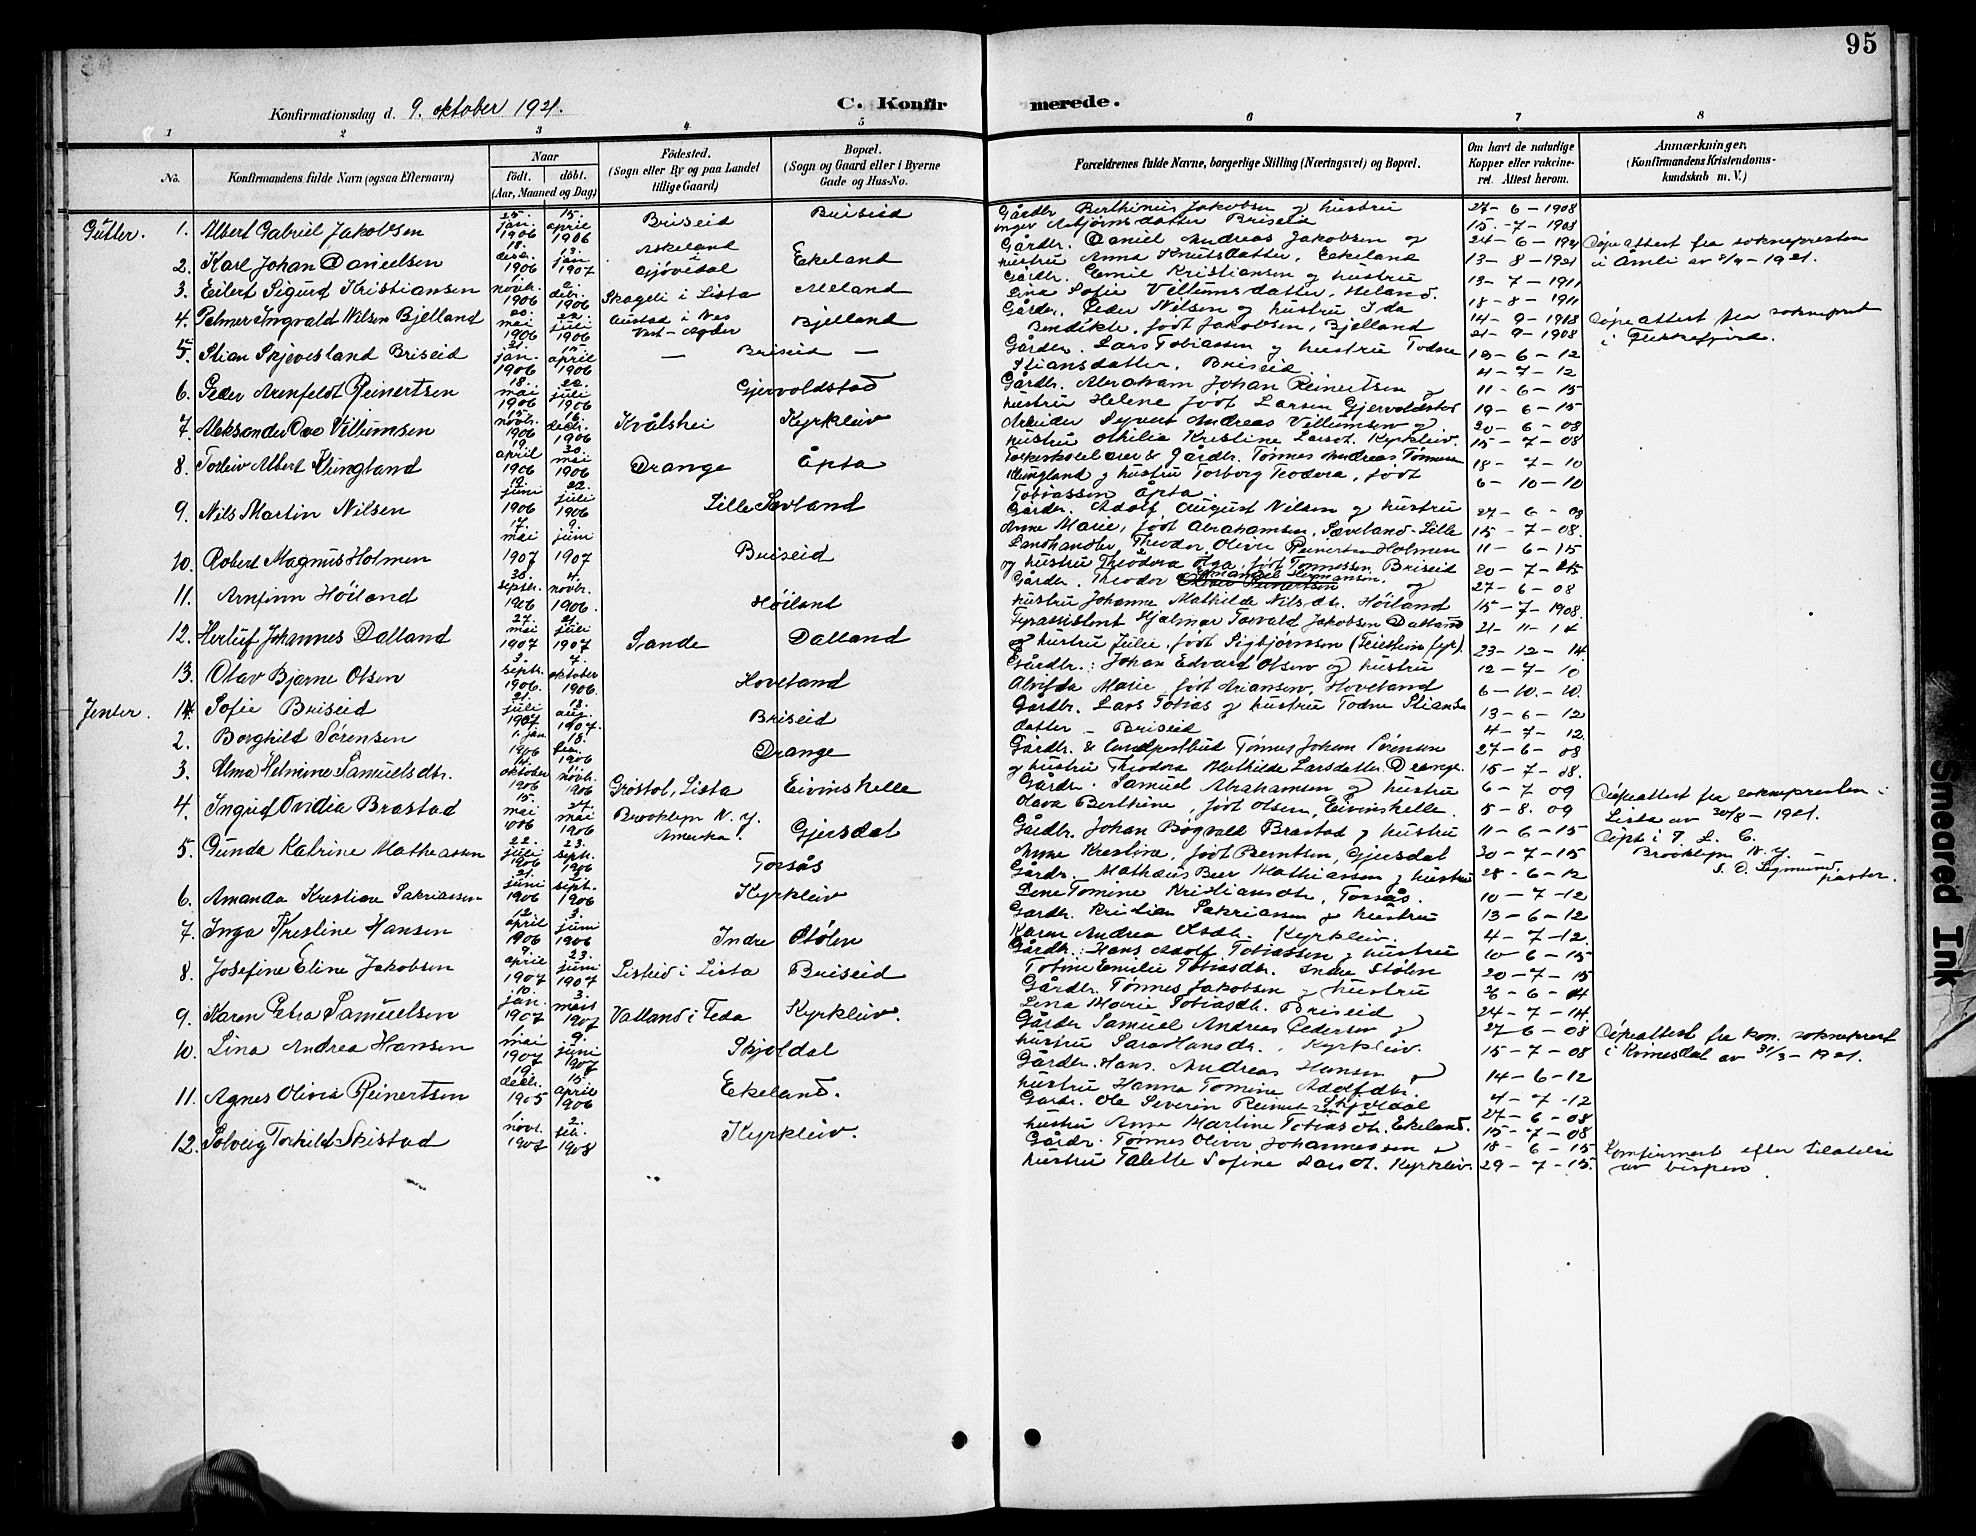 95
Konfirmationsdag d. 9. oktober 1921.
C. Konfirmerede.
1 2 3 4 5 6 7 8
No.
Konfirmandens fulde Navn (ogsaa Efternavn)
Naar
födt. döbt.
(Aar, Maaned og Dag)
Födested.
(Sogn eller By og paa Landet
tillige Gaard)
Bopæl.
(Sogn og Gaard eller i Byerne
Gade og Hus-No.
Forældrenes fulde Navne, borgerlige Stilling (Næringsvei) og Bopæl.
Om havt de naturlige
Kopper eller vakcine-
ret. Attest herom.
Anmærkninger.
(Konfirmandens Kristendoms-
kundskab m. V.)
Gutter. 1. Albert Gabriel Jakobsen 25. jan. 1906 15. april 1906 Briseid Briseid
Gårdbr. Berthinius Jakobsen og hustru 27-6-1908
Inger Asbjørnsdatter Briseid 15.-7-1908
2. Karl Johan Danielsen 18. desbr. 1906 13. jan 1907 Askeland i Gjövedal Ekeland
Gårdbr. Daniel Andreas Jakobsen og 24-6-1921 Døpeattest fra sokneprästen
hustru Anna Knutsdatter, Ekeland 13-8-1921 i Åmli av 2/9-1921.
3. Eilert Sigurd Kristiansen 1. novbr. 1906 2. debr. 1906 Skageli i Lista Meland
Gårdbr. Emil Kristiansen og hustru 13-7-1911
Lina Sofie Villumsdatter, Meland. 18-8-1911
4. Palmer Ingvald Nilsen Bjelland 20. mai 1906 22. juli 1906 Austad i Nes Vest-Agder Bjelland
Gårdbr. Peder Nilsen og hustru Ida 14-9-1908 Døpeattest fra sokneprest
Bendikte, født Jakobsen, Bjelland 21-9-1908 i Flekkefjord.
5. Stian Skjevesland Briseid 21. jan. 1906 15. april 1906 — Briseid —
Gårdbr. Lars Tobiassen og hustru Todne 13-6-12
Stiansdatter, Briseid 4-7-12
6. Peder Arenfeldt Reinertsen 18. mai 1906 22. juli 1906 Gjervoldstad
Gårdbr. Abraham Johan Reinertsen og 11-6-15
hustru Helene født Larsen Gjervoldstad 19-6-15
7. Aleksander Ovo Villumsen 15. novbr. 1906 16. decbr. 1906 Kvålshei Kyrkleiv
Arbeider Syvert Andreas Villumsen og 20-6-08
hustru Othilie Kristine Larsdt. Kyrkleiv. 15-7-08
8. Torleiv Albert Klungland 19. april 1906 30. mai 1906 Drange Åpta
Folkeskolelærer & Gårdbr. Tønnes Andreas Tønnesen 18-7-10
Klungland og hustru Torborg Teodora, født 6-10-10
Tobiassen Åpta.
9. Nils Martin Nilsen 12. juni 1906 22. juli 1906 Lille Sævland
Gårdbr. Adolf August Nilsen og hustru 27-6-08
Anne Marie, født Abrahamsen, Sæveland-Lille 15-7-08.
10. Robert Magnus Holmen 17. mai 1907 9. juni 1907 Briseid
Landhandler Theodor Oliver Reinertsen Holmen 11-6-15
og hustru Theodora Åga, født Tønnessen Briseid 20-7-15
11. Arnfinn Höiland 30. septbr. 1906 4. novbr. 1906. Höiland
Gårdbr. Theodor Emanuel Hermansen, og 27-6-08
hustru Johanne Mathilde Nilsdtr. Höiland 15-7-1908.
12. Herluf Johannes Dalland 27. mai 1907 21. juli 1907 Sande Dalland
Fyrassistent Hjalmar Torvald Jakobsen Dalland 21-11-14
og hustru Julie, født Sigbjørnsen (Feistein fyr). 23-12-14
13. Olav Bjarne Olsen 3. septbr. 1906. 7. oktober 1906. Hoveland
Gårdbr.: Johan Edvard Olsen og hustru 12-7-10
Alvilda Marie, født Ariansen, Hoveland 6-10.-10.
Jenter. 1. Sofie Briseid 21. juli 1907 18. aug. 1907. Briseid
Gårdbr. Lars Tobias og hustru Todne Stians 13-6-12
datter – Briseid 4-7-12.
2. Borghild Sørensen 1. jan. 1906 18. feb. 1906 Drange
Gårdbr. & landpostbud Tønnes Johan Sörensen 27-6-08
og hustru Theodora Mathilde Larsdatter. Drange. 15-7-08.
3. Alma Helmine Samuelsdtr. 14. oktober 1906 11. novbr. 1906 Grøstøl, Lista Eivinshelle
Gårdbr. Samuel Abrahamsen og hustru 6-7 09 Døpeattest fra sokneprästen i
Olava Berthine, født Olsen, Eivinshelle. 5-8. 09 Lista av 20/8-1921.
4. Ingrid Ovidia Brastad 15. mai 1906 27. mai 1906 Brooklyn N. y. Amerika. Gjersdal
Gårdbr. Johan Bøgvald Brastad og hustru 11-6-15 Døpt i T. L. C.
Anne Kristine, født Berntsen, Gjersdal 30-7-15 Brooklyn N. y. –
5. Gunda Katrine Mathiassen 22. juli 1906 23. septbr. 1906 Torsås
Gårdbr. Mathæus Beer Mathiassen og hustru 28-6-12 S. O. Sigmund, pastor.
Lene Tomine Kristiansdtr, Torsås. 10-7-12
6. Amanda Kristiane Sakriassen 21. juni 1906 2. sept. 1906 Kyrkleiv
Gårdbr. Kristian Sakriassen og hustru 13-6-12
Karen Andrea Olsdtr. Kyrkleiv. 4-7-12.
7. Inga Kristine Hansen 12. april 1906 3. juni 1906 Indre Stölen
Gårdbr.: Hans Adolf Tobiassen og hustru 10-6-15
Tobine Emilie Tobiasdtr. Indre Stølen 20-7-15
8. Josefine Eline Jakobsen 9. april 1907 23. juni 1907 Listeid i Lista Briseid
Gårdbr. Tønnes Jakobsen og hustru 26-6-14
Lina Marie Tobiasdtr. Briseid 24-7-14.
9. Karen Petra Samuelsen 10. jan. 1907 3. mars 1907 Vatland i Feda Kyrkleiv.
Gårdbr Samuel Andreas Pedersen og 27-6-08 Døpeattest fra kon. sokneprest
hustru Sara Hansdtr., Kyrkleiv. 15-7-08 i Kvinesdal av 31/3-1921.
10. Lina Andrea Hansen 1. mai 1907 9. juni 1907 Skjoldal
Gårdbr. Hans Andreas Hansen og 14-6-12
hustru Hanna Tomine Adolfdtr. Skjoldal 4-7-12
11. Agnes Olivia Reinertsen 19. decbr. 1905 15. april 1906 Ekeland.
Gårdbr. Ole Severin Reinertsen 27-6-08
hustru Anne Martine Tobiasdtr. Ekeland. 15-7-08
12. Solveig Torhild Skistad 1. novbr. 1907 2. feb. 1908 Kyrkleiv.
Gårdbr. Tønnes Oliver Johannessen og 18-6-15 Konfirmert efter tilatelse
hustru Talette Sofine Larsdt. Kyrkleiv. 29-7-15. av bispen.
Smeared Ink